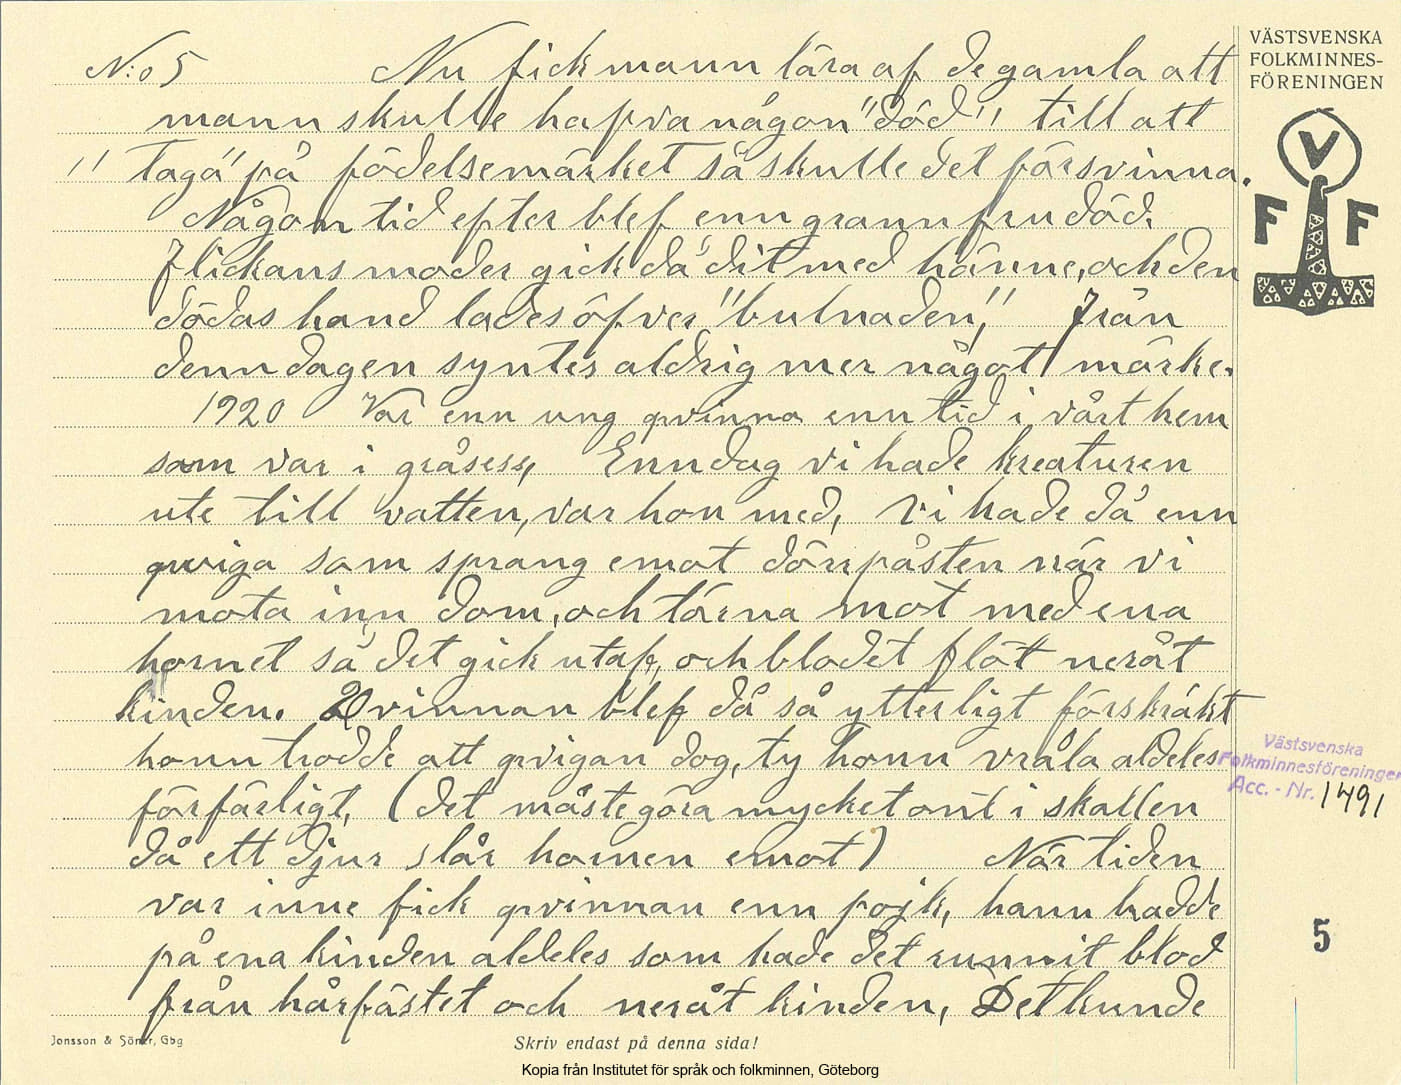 VÄSTSVENSKA
FOLKMINNES-
FÖRENINGEN
V
F F
N:o 5 Nu fick mann lära af de gamla att
mann skulle hafva någon "död" till att
"taga" på födelsemärket så skulle det försvinna.
Någon tid efter blef enn grannfru död.
Flickans moder gick då dit med hänne, och den
dödas hand lades öfver "bulnaden," Från
denn dagen syntes aldrig mer något märke.
1920 Var enn ung qvinna enn tid i vårt hem
som var i gråsess, Enn dag vi hade kreaturen
ute till vatten, var hon med, Vi hade då enn
qwiga som sprang emot dörrpåsten när vi
mota inn dom, och törna mot med ena
hornet så det gick utaf, och blodet flöt neråt
kinden. Qvinnan blef då så ytterligt förskräkt
honn trodde att qvigan dog, ty honn vråla aldeles
förfärligt, (det måste göra mycket ont i skallen
då ett djur slår hornen emot) När tiden
var inne fick qvinnan enn pojk, hann hadde
på ena kinden aldeles som hade det runnit blod
från hårfästet och neråt kinden, Det kunde
Västsvenska
Folkminnesföreningen
Acc. - Nr. 1491
5
Jonsson & Söner, Gbg
Skriv endast på denna sida!
Kopia från Institutet för språk och folkminnen, Göteborg